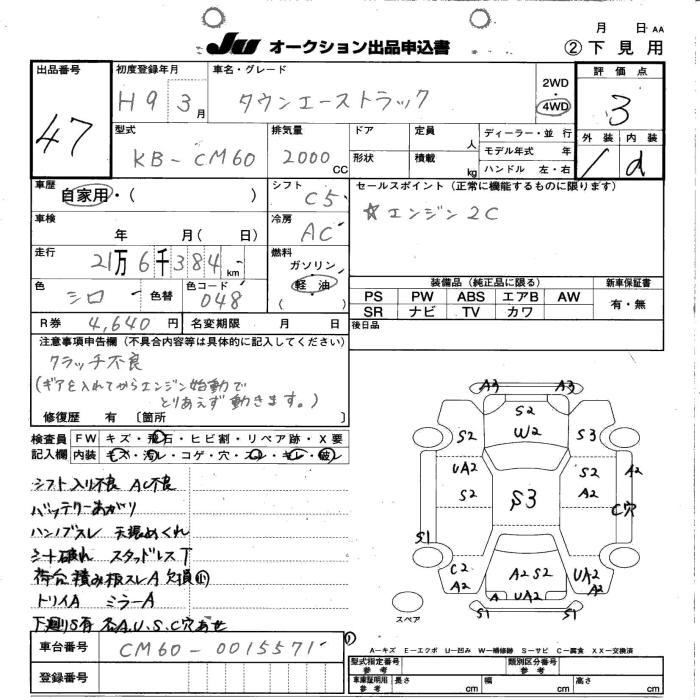 月 日 AA
JU オークション出品申込書
② 下見用
出品番号
47
初度登録年月
H9 3月
車名・グレード
タウンエーストラック
2WD
・
4WD
評価点
3
外装 内装
/ d
型式
KB-CM60
排気量
2000 CC
ドア
形状
定員 人
積載 kg
ディーラー・並行
モデル年式 年
ハンドル 左・右
車歴
自家用・( )
シフト
C5
セールスポイント (正常に機能するものに限ります)
☆エンジン2C
車検
年 月( 日)
冷房
AC
走行
21万6千384km
燃料
ガソリン
軽油
( )
色
シロ
色替
色コード
048
装備品(純正品に限る)
新車保証書
PS PW ABS エアB AW
SR ナビ TV カワ
有・無
R券 4,640円
名変期限 月 日
後日品
注意事項申告欄(不具合内容等は具体的に記入してください)
クラッチ不良
(ギアを入れてからエンジン始動で
とりあえず動きます。)
修復歴 有 〔箇所 〕
検査員
記入欄
FW キズ・飛石・ヒビ割・リペア跡・X要
内装 キズ・汚レ・コゲ・穴・スレ・キレ・破レ
シフト入リ不良 AC不良
バッテリーあがり
ハンドブスレ 天張めくれ
シート破れ スタッドレスT
荷台積み根スレA 欠損
トリイA ミラーA
下廻りS有 各A.U.S.C穴あせ
A3 A3
S2
W2
S2 S3
UA2
S2
S2
A2
A2
C穴
S3
S1
S1
C2
A2
A2 S2
UA2
A2
A UA2
S1 S1
スペア
車台番号
CM60-0015571
登録番号
①
A-キズ E-エクボ U-凹み W-補修跡 S-サビ C-腐食 XX-交換済
型式指定番号
参考
類別区分番号
参考
車庫証明用
参考
長さ cm 幅 cm 高さ cm